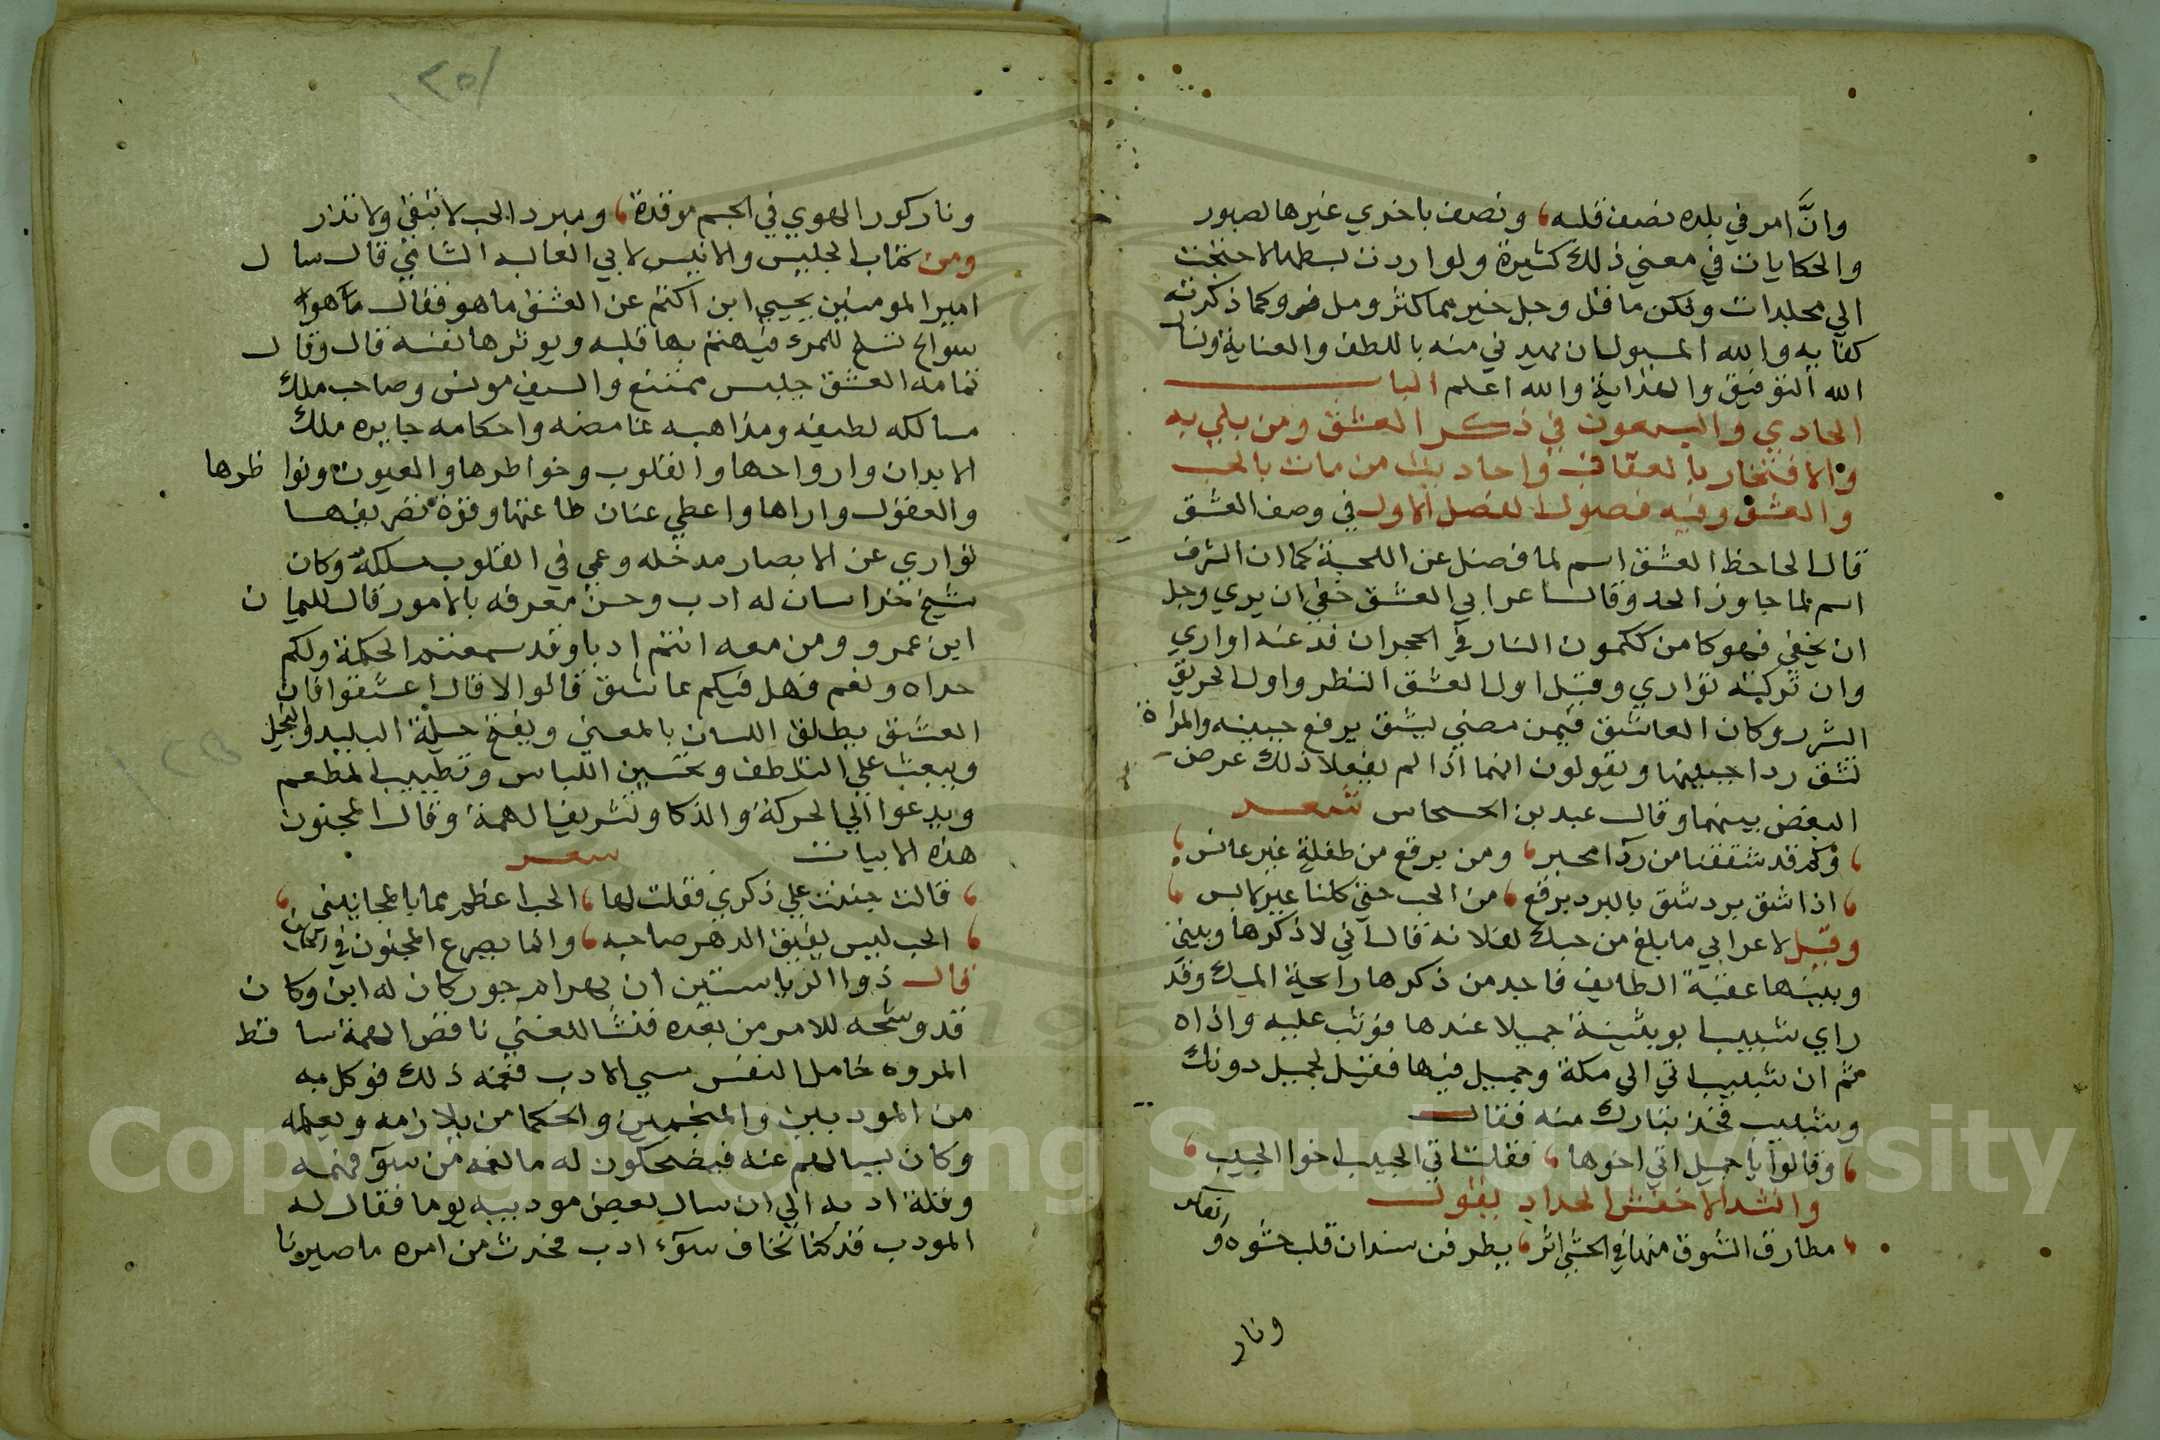 وانَّ امر في بلده نصف قلبه، ونصف باخري غيرها لصبور
والحكايات في معني ذلك كثيرة ولو اردت بسطها لاحتجت
الي مجلدات ولكن ما قل وجل خير مما كثر ومل وكما ذكرته
كفايه والله المسول ان يهديني منه باللطف والعناية ونسال
الله التوفيق والهداية والله اعلم الباب
الحادي والسبعون في ذكر العشق ومن بلي به
والافتخار بالعفاف واحاديث من مات بالحب
والعشق وفيه فصول الفصل الاول في وصف العشق
قال الجاحظ العشق اسم لما فضل عن المحبة كما ان السرف
اسم لما جاوز الحد وقال اعرابي العشق خفي ان يري وجل
ان يخفي فهو كامن ككمون النار في الحجران قدحته اواري
وان تركته تواري وقيل اول العشق النظر واول الحريق
الشرر وكان العاشق فيمن مضي يشق برقع حبيبته والمراة
تشق ردا حبيبها ويقولون انهما اذا لم يفعلا ذلك عرض
البغض بينهما وقال عبد بن الحسحاس شعر
، وكم قد شققنا من ردآ محبر، ومن برقع من طفلة غير عانس،
، اذا شق برد شق بالبرد برقع، من الحب حتي كلنا غير لابس،
وقيل لاعرابي ما بلغ من حبك لفلانة قال اني لاذكرها وبيني
وبينها عقبة الطايف فاجد من ذكرها رائحة المسك وقد
راي شبيب ابو بثينة جميلا عندها فوثب عليه واذاه
ثم ان شبيبا اتي الي مكة وجميل فيها فقيل لجميل دونك
وشبيب فخذ بثارك منه فقال
، وقالوا يا جميل اتي اخوها، فقلت اتي الحبيب اخوا الحبيب،
وانشد الاخفش الحداد يقول
، مطارق الشوق منها في الحشي اثر، يطرقن سندان قلب حشوه
ونار
ونار كور الهوي في الجسم موقدة، ومبرد الحب لا تبقي ولا تذر
ومن كتاب الجليس والانيس لابي العاليه الشامي قال سال
امير المومنين يحيي ابن اكثم عن العشق ما هو فقال
سوانح تسنح للمرء فيهتم بها قلبه ويوثرها نفسه قال وقال
ثمامه العشق جليس ممتع واليف مونس وصاحب ملك
مسالكه لطيفه ومذاهبه غامضه واحكامه جايره ملك
الابدان وارواحها والقلوب وخواطرها والعيون ونواظرها
والعقول واراها واعطي عنان طاعتها وقوة تصريفها
تواري عن الابصار مدخله وعمي في القلوب مسلكه وكان
شيخ خراسان له ادب وحسن معرفه بالامور قال لسليمان
ابن عمرو ومن معه انتم ادبا وقد سمعتم الحكمة ولكم
حداه ونغم فهل فيكم عاشق قالوا لا قال اعشقوا فان
العشق يطلق اللسان بالمعني ويفتح حيلة البليد والبخيل
ويبعث علي التلطف وتحسين اللباس وتطييب المطعم
ويدعوا الي الحركة والذكا وتشريف الهمة وقال المجنون
هذه الابيات شعر
، قالت جننت علي ذكري فقلت لها، الحب اعظم مما بالمجانين،
، الحب ليس يفيق الدهر صاحبه، وانما يصرع المجنون في
قال ذوا الرياستين ان بهرام جور كان له ابن وكان
قد وشحه للامر من بعده فنشا الفتي ناقص الهمة ساقط
المروه خامل النفس سي الادب فغمه ذلك فوكل به
من المودبين والمنجمين والحكما من يلازمه ويعلمه
وكان يسالهم عنه فيضحكون له ما لغمه من سوء فهمه
وقلة ادبه الي ان سال بعض مودبيه يوما فقال له
المودب قد كنا نخاف سوء ادب فحدث من امره ما صيرنا